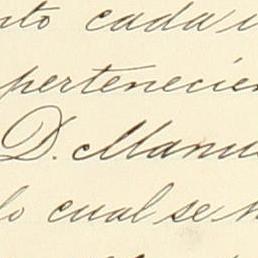 nto cada u
pertenecien
D. Manu
lo cual se h